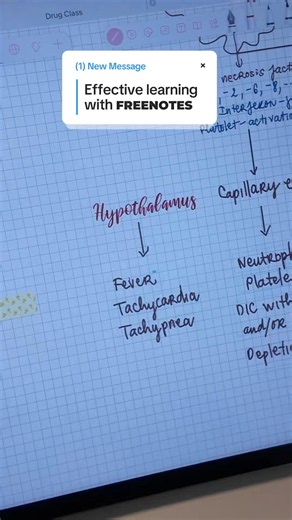 Drug Class
(1) New Message
×
Effective learning
with FREENOTES
necrosis
-2, -6, -8,
Interferon-
Platelet-activati
Hypothalamus
Capillary
Fever
Tachycardia
Tachypnea
Neutroph
Platele
DIC with
and/or
Depleti